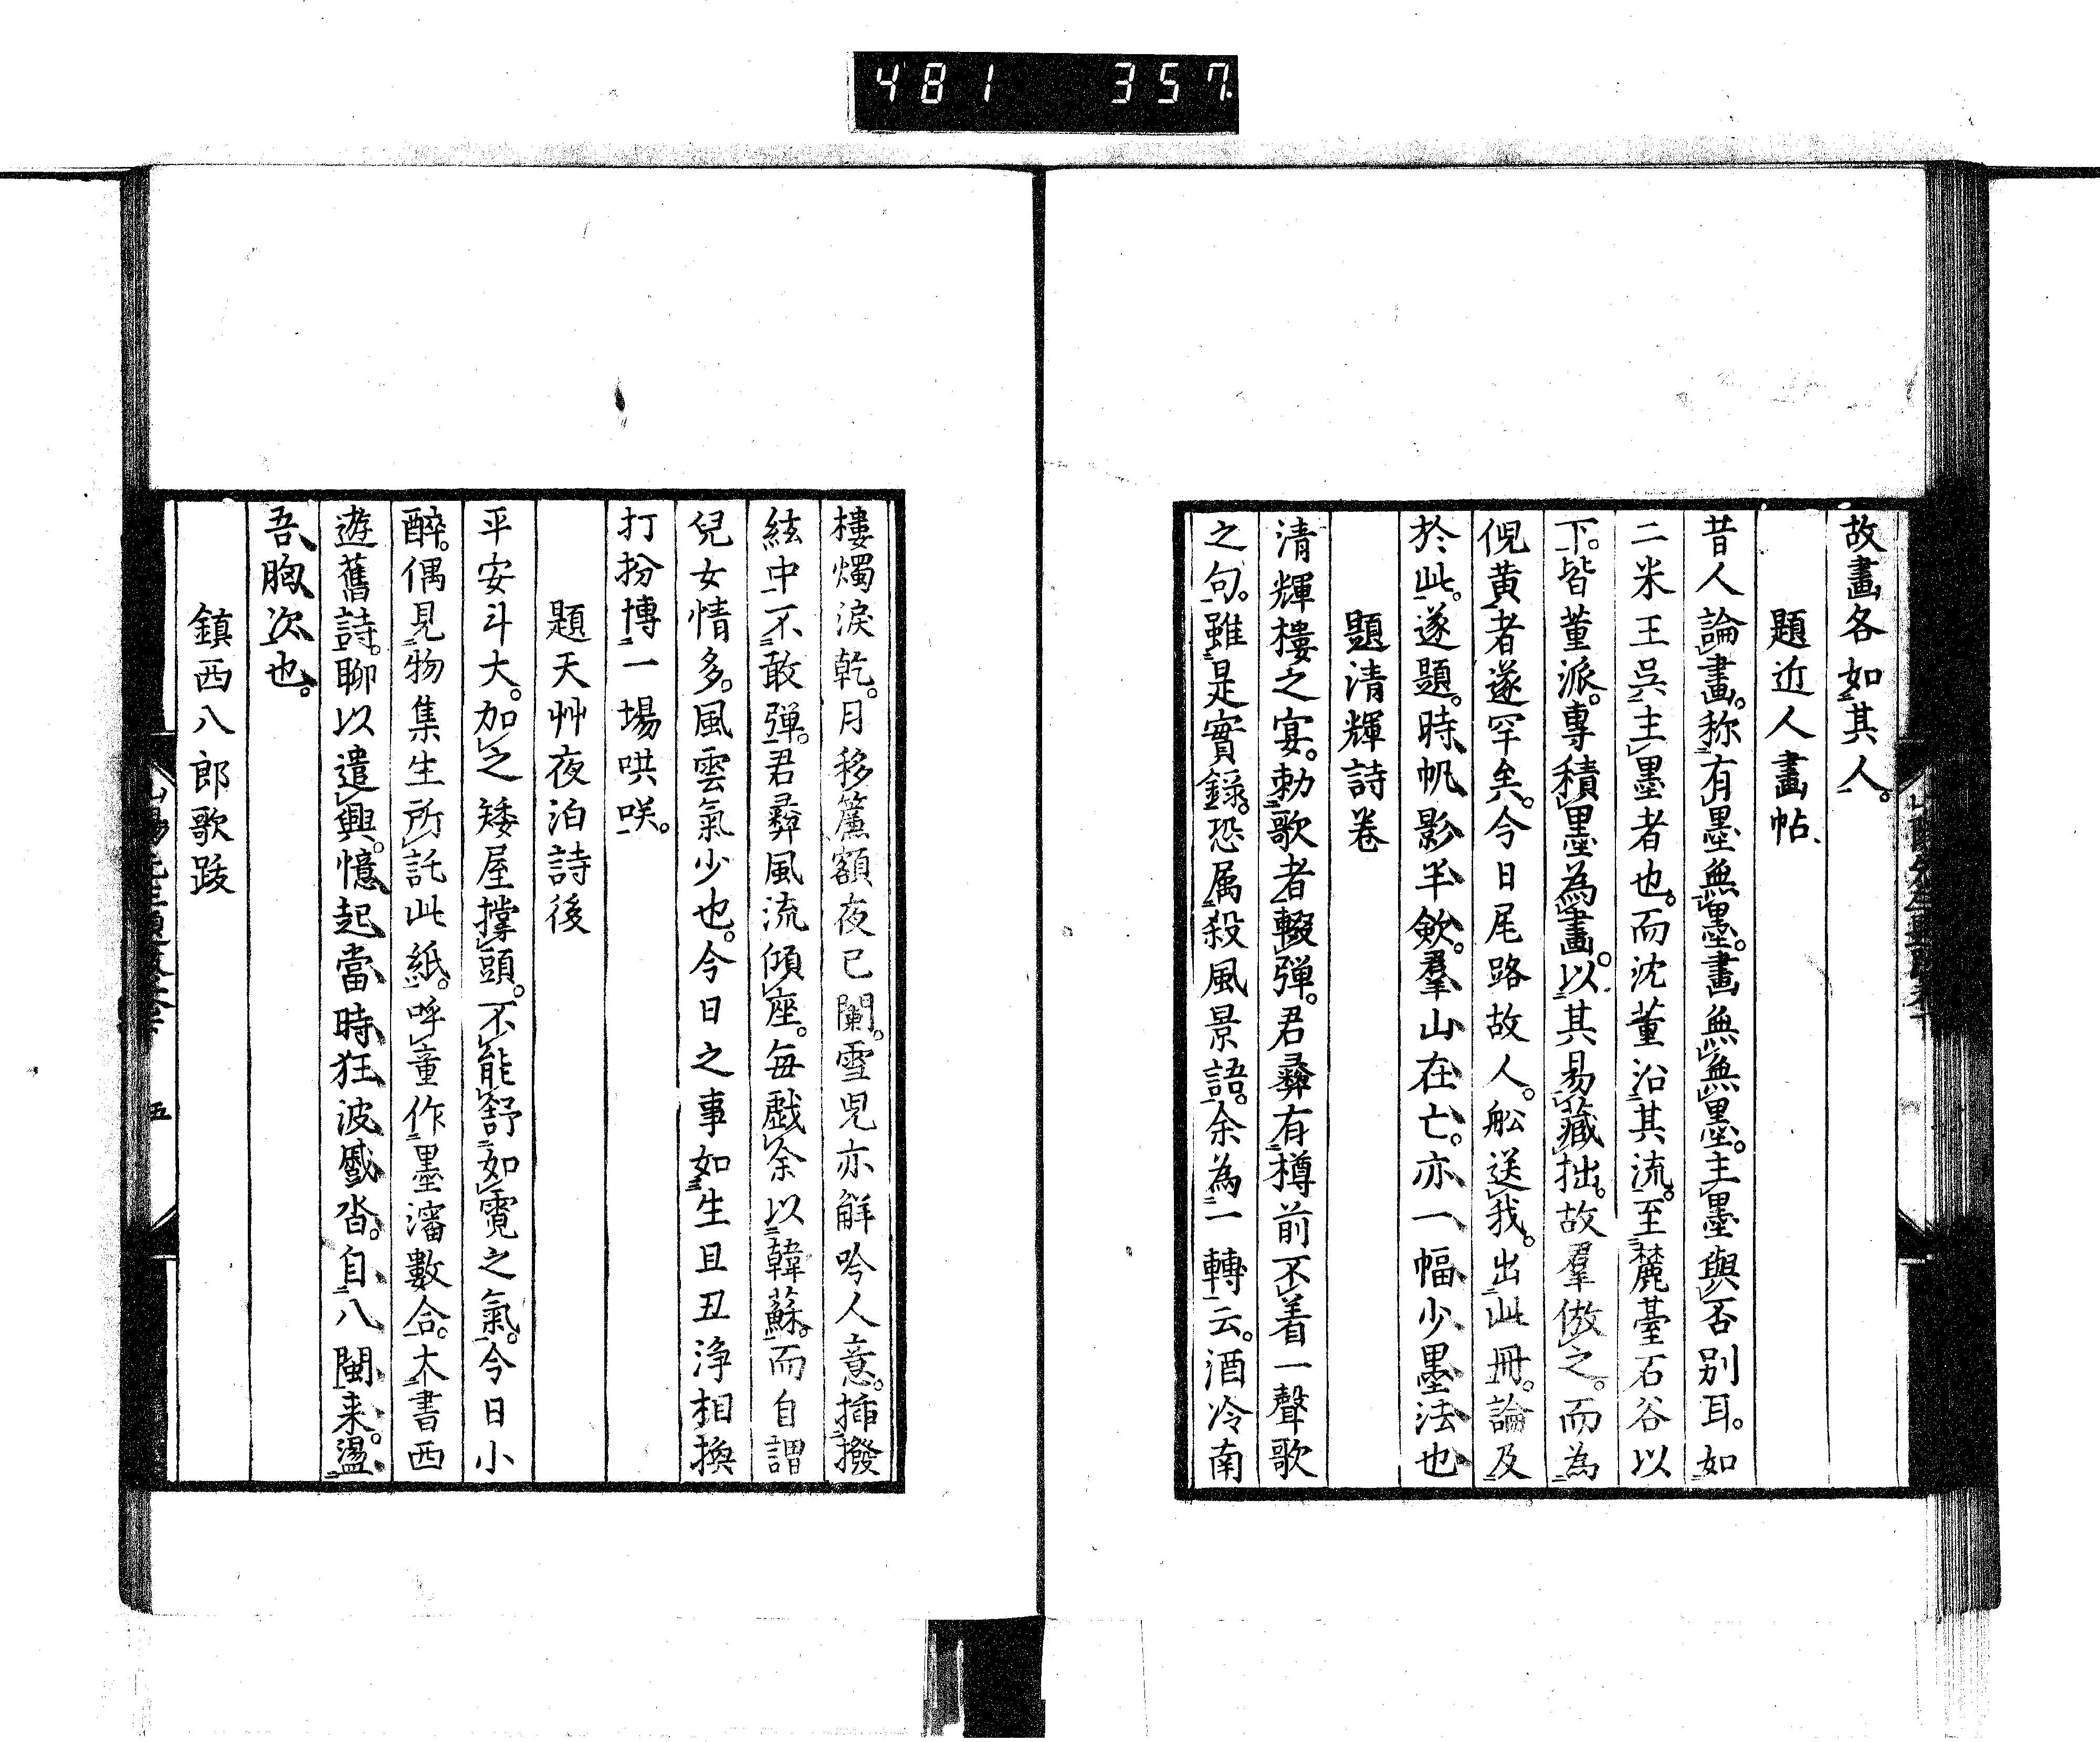 481 357.
故畫各如其人。
題近人畫帖
昔人論畫。称有墨無墨。畫無無墨。主墨與否別耳。如
二米王呉主墨者也。而沈董沿其流。至麓臺石谷以
下。皆董派。專積墨為畫。以其易藏拙。故羣倣之。而為
倪黄者遂罕矣。今日尾路故人。舩送我。出此冊。論及
於此。遂題。時帆影半欹。羣山在亡。亦一幅少墨法也
題清輝詩卷
清輝樓之宴。勅歌者輟弾。君彜有樽前不着一聲歌
之句。雖是實録。恐属殺風景語。余為一轉云。酒冷南
樓燭淚乾。月移簾額夜已闌。雪児亦解吟人意。插撥
絃中不敢弾。君彜風流傾座。毎戯余以韓蘇。而自謂
兒女情多。風雲氣少也。今日之事如生且丑浄相換
打扮博一場哄咲。
題天艸夜泊詩後
平安斗大。加之矮屋撑頭。不能舒如霓之氣。今日小
醉。偶見物集生所託此紙。呼童作墨瀋數合。大書西
遊舊詩。聊以遣興。憶起當時狂波蹙沓。自八閩来。盪
吾胸次也。
鎮西八郎歌跋
五